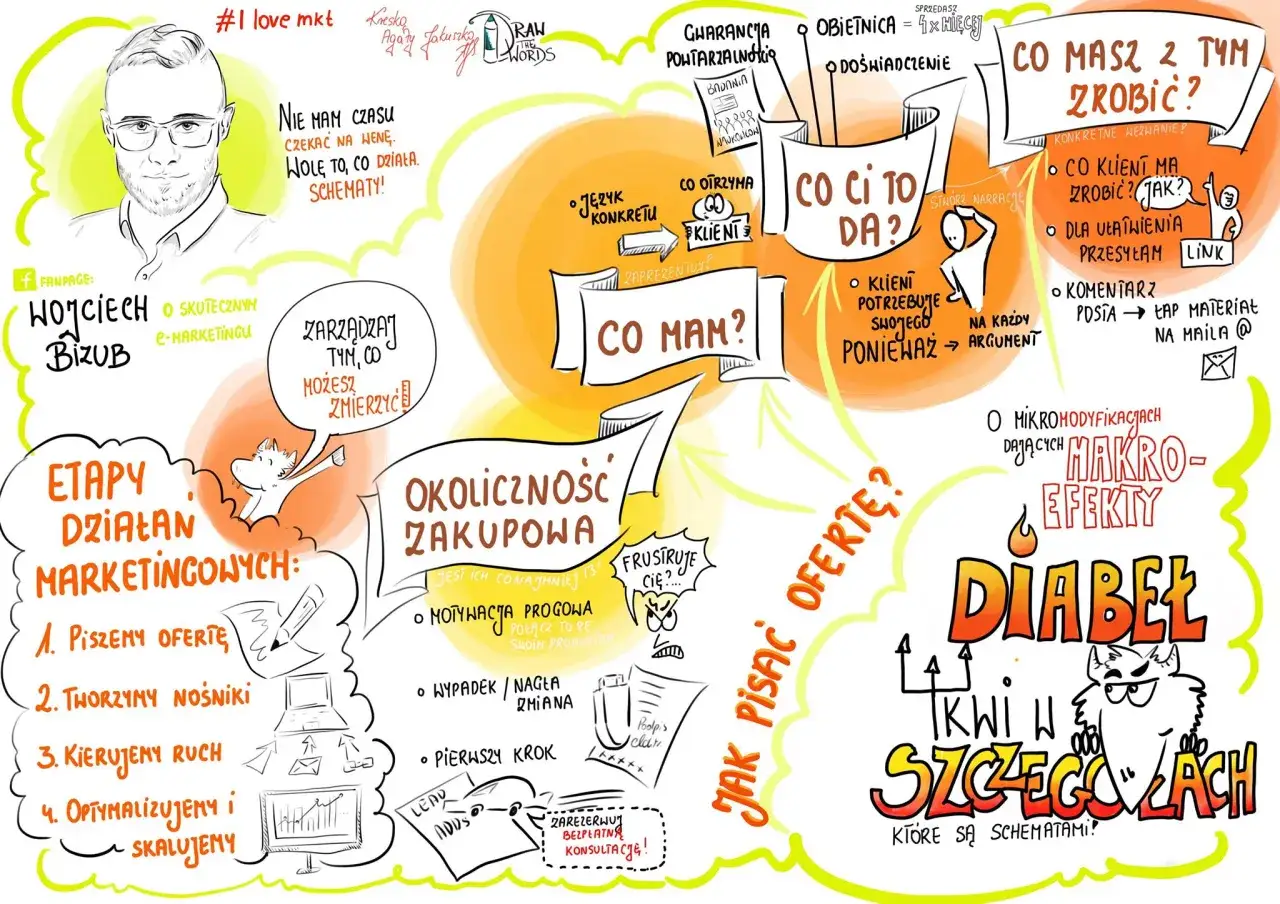 #I love mkt
Kreską
Agaty Jakuszko
DRAW
THE
WORDS
NIE MAM CZASU
CZEKAĆ NA WENĘ.
WOLĘ TO, CO DZIAŁA.
SCHEMATY!
f FANPAGE:
WOJCIECH
BIZUB
O SKUTECZNYM
E-MARKETINGU
ZARZĄDZAJ
TYM, CO
MOŻESZ
ZMIERZYĆ!
ETAPY
DZIAŁAŃ
MARKETINGOWYCH:
1. PISZEMY OFERTĘ
2. TWORZYMY NOŚNIKI
3. KIERUJEMY RUCH
4. OPTYMALIZUJEMY I
SKALUJEMY
OKOLICZNOŚĆ
ZAKUPOWA
JEST ICH CO NAJMNIEJ 13
MOTYWACJA PROGOWA
POŁĄCZ TO ZE
SWOIM
FRUSTRUJE
CIĘ?...
WYPADEK / NAGŁA
ZMIANA
Podpis
elektr.
PIERWSZY KROK
LEAD
ADDS
ZAREZERWUJ
BEZPŁATNĄ
KONSULTACJĘ!
JAK PISAĆ OFERTĘ?
ZAPREZENTUJ!
CO MAM?
JĘZYK
KONKRETU
CO OTRZYMA
KLIENT
CO CI TO
DA?
GWARANCJA
POWTARZALNOŚCI
BADANIA
NAUKOWCÓW
OBIETNICA = SPRZEDASZ
4x WIĘCEJ
DOŚWIADCZENIE
STWÓRZ NARRACJĘ
KLIENT
POTRZEBUJE
SWOJEGO
PONIEWAŻ → NA KAŻDY
ARGUMENT
CO MASZ Z TYM
ZROBIĆ?
KONKRETNE WEZWANIE?
CO KLIENT MA
ZROBIĆ? JAK?
DLA UŁATWIENIA
PRZESYŁAM LINK
KOMENTARZ
POSTA → ŁAP MATERIAŁ
NA MAILA @
O MIKROMODYFIKACJACH
DAJĄCYCH
MAKRO-
EFEKTY
DIABEŁ
TKWI W
SZCZEGÓŁACH
KTÓRE SĄ SCHEMATAMI!